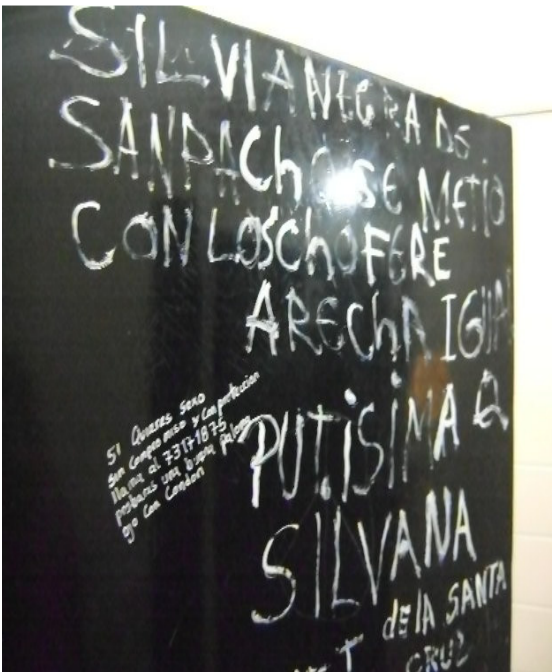 SILVIA NEGRA DE
SANPACHO SE METIO
CON LOS CHOFERE
ARECHA IGUA
PUTISIMA Q
SILVANA
de lA SANTA
CRUZ
Si Quieres Sexo
sin compromiso y con proteccion
llama al 73171875
probaras una buena Paloma
ojo con Condon